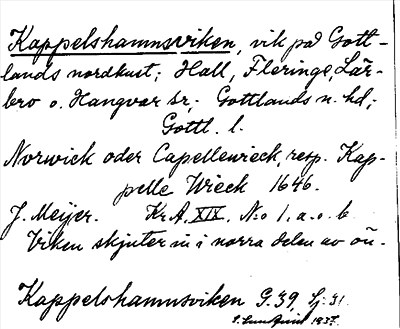 Kappelshamnsviken, vik på Gott-
lands nordkust; Hall, Fleringe, Lär-
bro o. Hangvar sr; Gottlands n. hd;
Gottl. l.
Norwick oder Capellewieck, resp. Kap-
pelle Wieck 1646.
J. Meijer. Kr. A. XIX. N:o 1. a. o. b.
Viken skjuter in i norra delen av ön.
Kappelshamnsviken G. 39, Sj. 31.